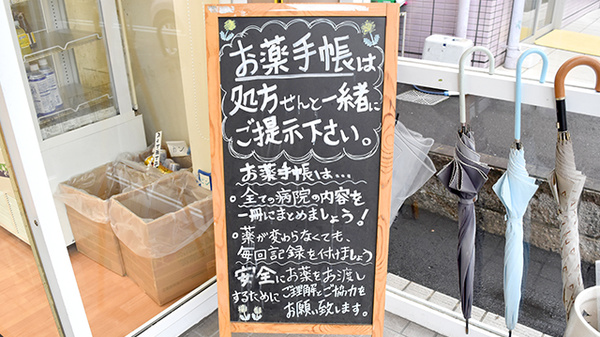 お薬手帳は
処方せんと一緒に
ご提示下さい。
お薬手帳は…
・全ての病院の内容を
一冊にまとめましょう!
・薬が変わらなくても、
毎回記録を付けましょう
安全にお薬をお渡し
するためにご理解とご協力を
お願い致します。